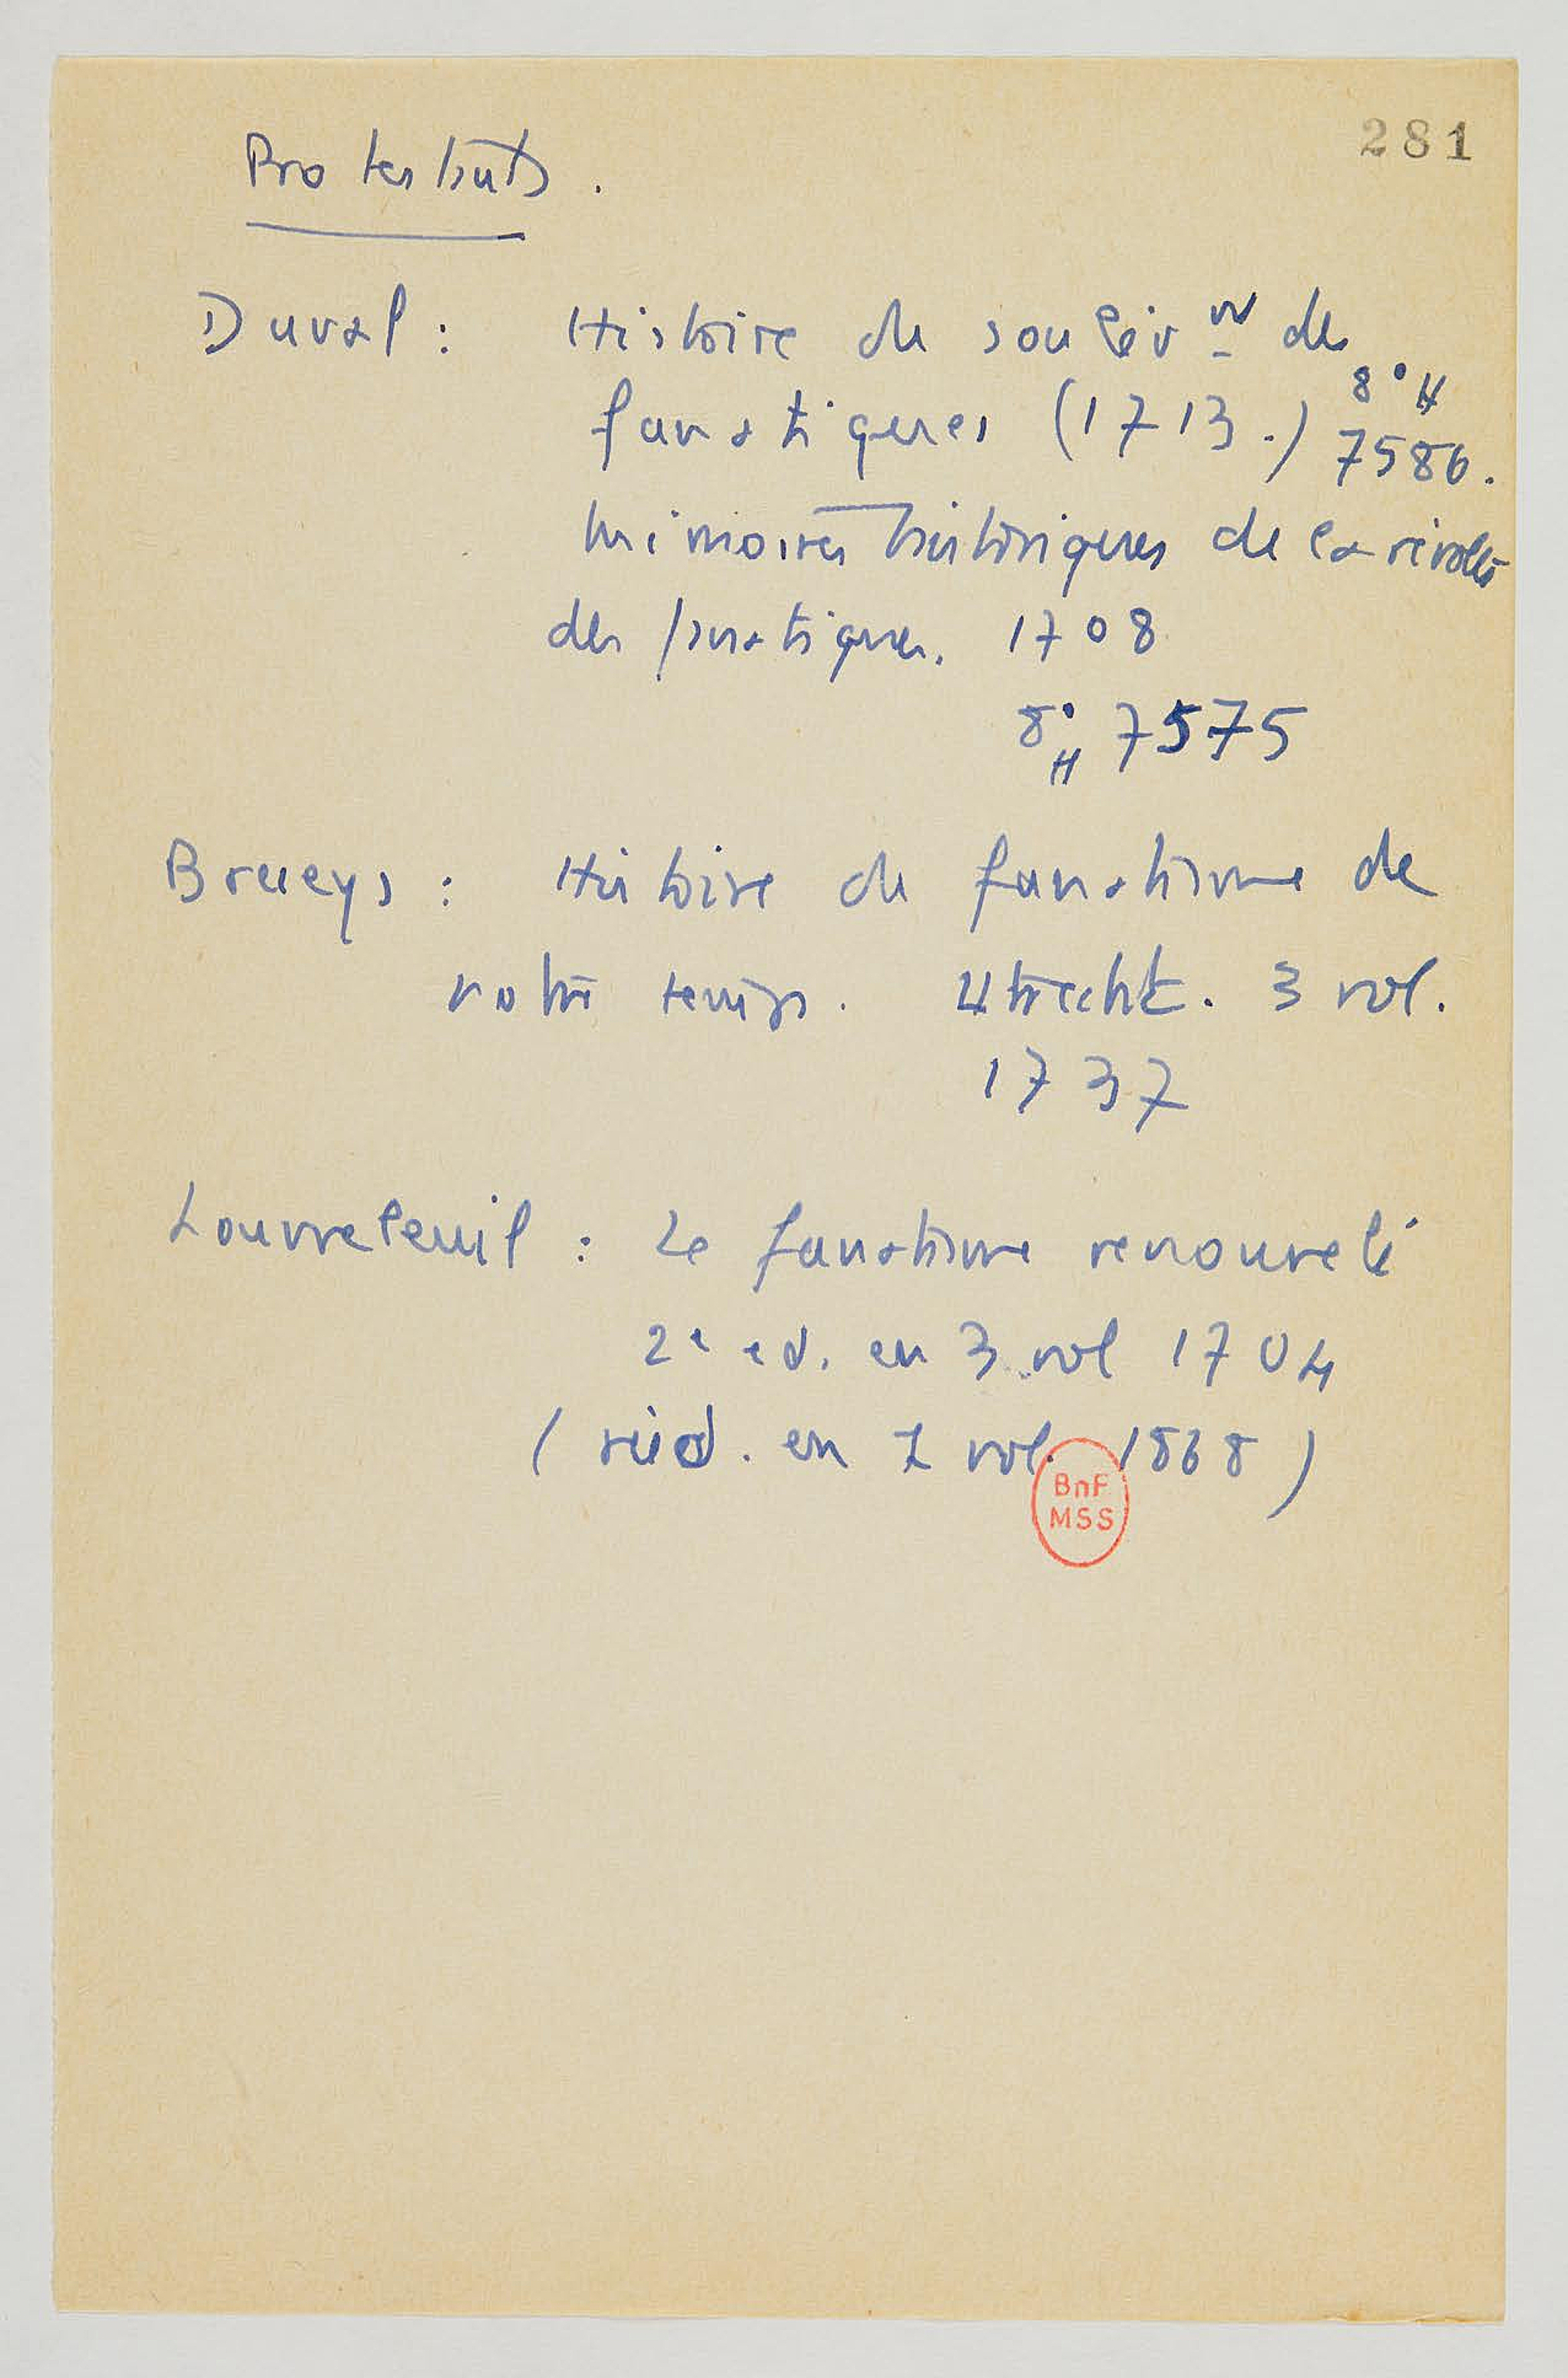 281
Protestants.
Duval : Histoire du soulèv nt des
fanatiques (1713.) 8° H
7586.
Mémoires historiques de la révolte
des fanatiques. 1708
8° H 7575
Brueys : Histoire du fanatisme de
notre temps. Utrecht. 3 vol.
1737
Louvreleuil : Le fanatisme renouvelé
2e ed. en 3 vol 1704
(rééd. en 1 vol. 1868)
BnF
MSS